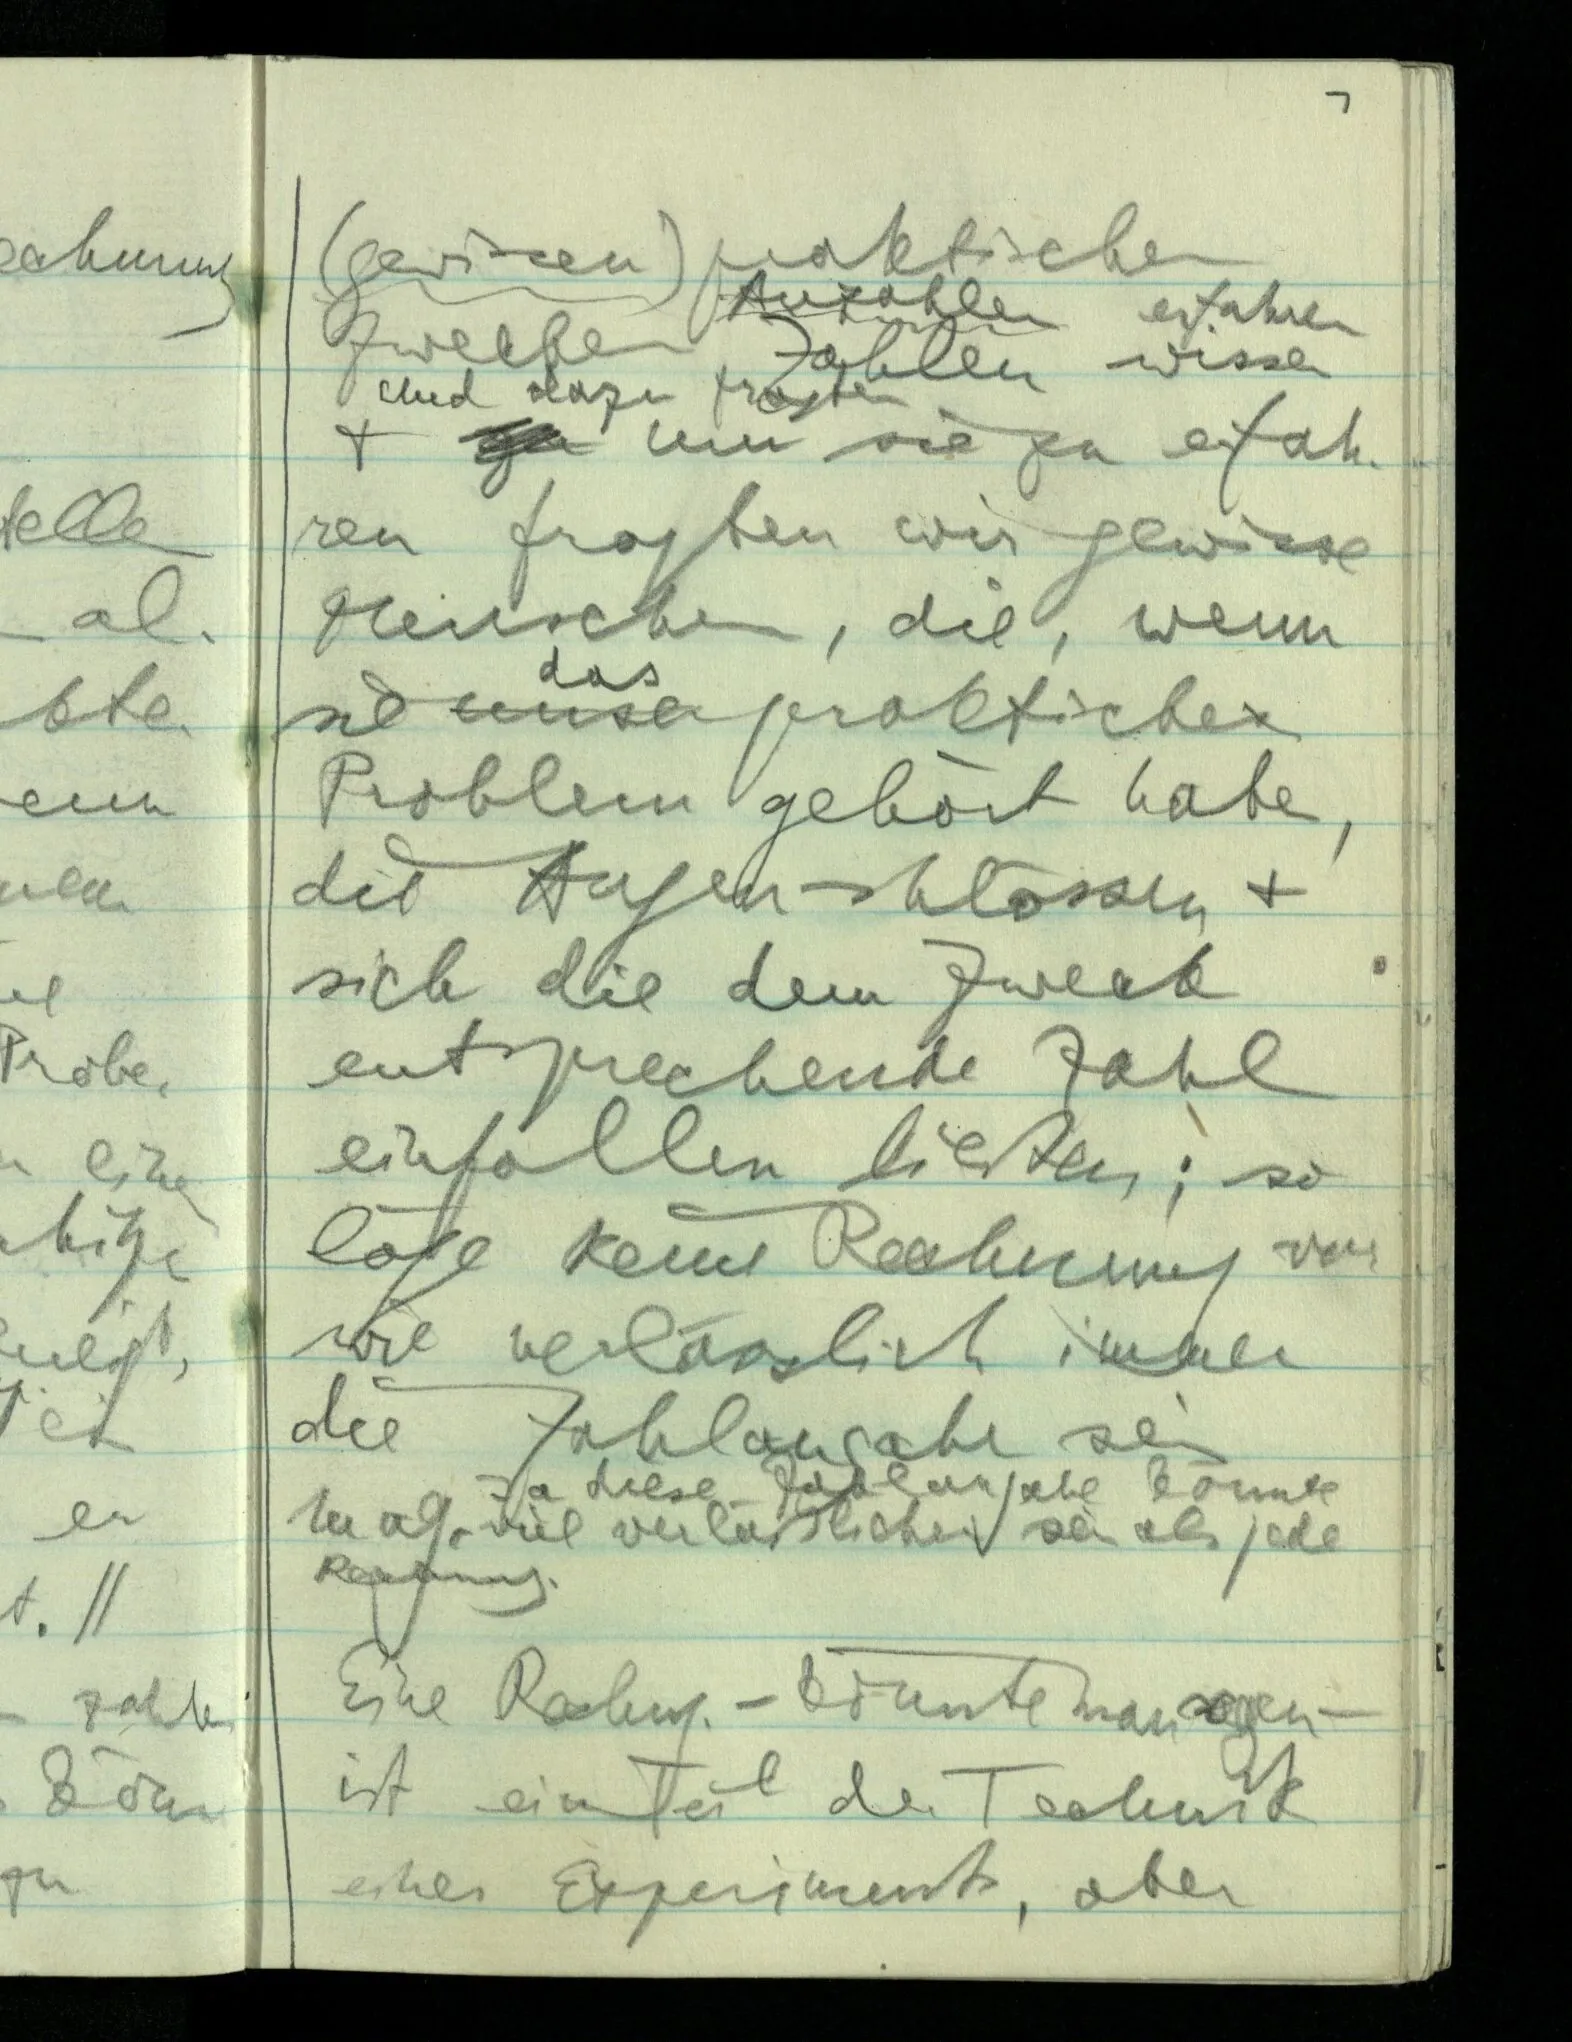 7
(gewissen) praktischen
Anzahlen erfahren
Zwecken Zahlen wissen
und dazu fragten
+ um sie zu erfah-
ren fragten wir gewisse
Menschen, die, wenn
das
sie unser praktisches
Problem gehört haben,
die Augen schlössen +
sich die dem Zweck
entsprechende Zahl
einfallen ließen; so
läge keine Rechnung vor
wie verlässlich immer
die Zahlangabe sein
Ja diese Zahlangabe könnte
mag. viel verlässlicher sein als jede
Rechnung.
Eine Rechng. – könnte man sagen –
ist ein Teil der Technik
eines Experiments, aber
echnung
telle
al.
kte.
enn
Probe.
eine
er
t. //
zahlen
zu